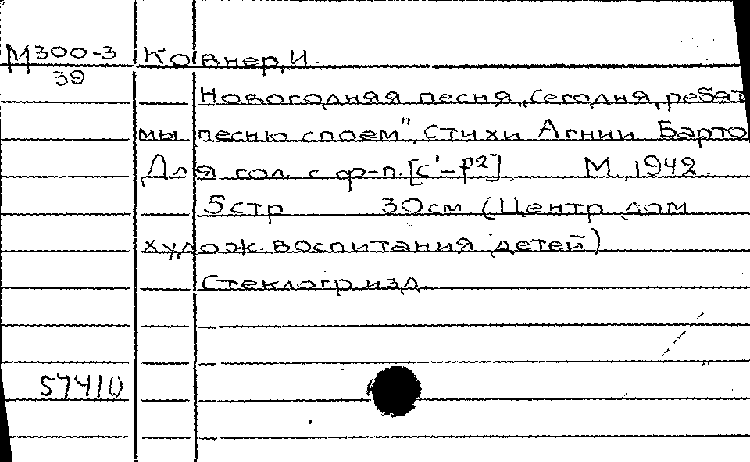 М300-3 Ковнер, И.
39
Новогодняя песня „Сегодня, ребят
мы песню споем", Стихи Агнии Барто
Для гол. с ф-п. [c'-f²] М., 1942
5 стр 30 см (Центр дом
худож. воспитания детей)
Стеклогр. изд.
57410